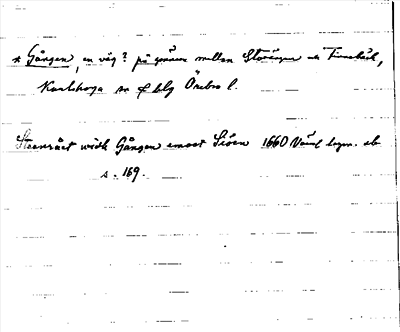 * Gången, en väg? på gränsen mellan Storängen och Timsbäck,
Karlskoga sn o blg Örebro l.
Steenrået widh Gången emoot Siöen 1660 Värml lagm. db
s. 169.